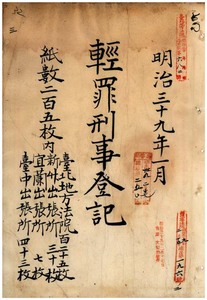 明治三十九年一月
輕罪刑事登記
紙數二百五枚内
臺北地方法院百二十五枚
新竹出張所三十枚
宜蘭出張所七枚
臺中出張所四十三枚